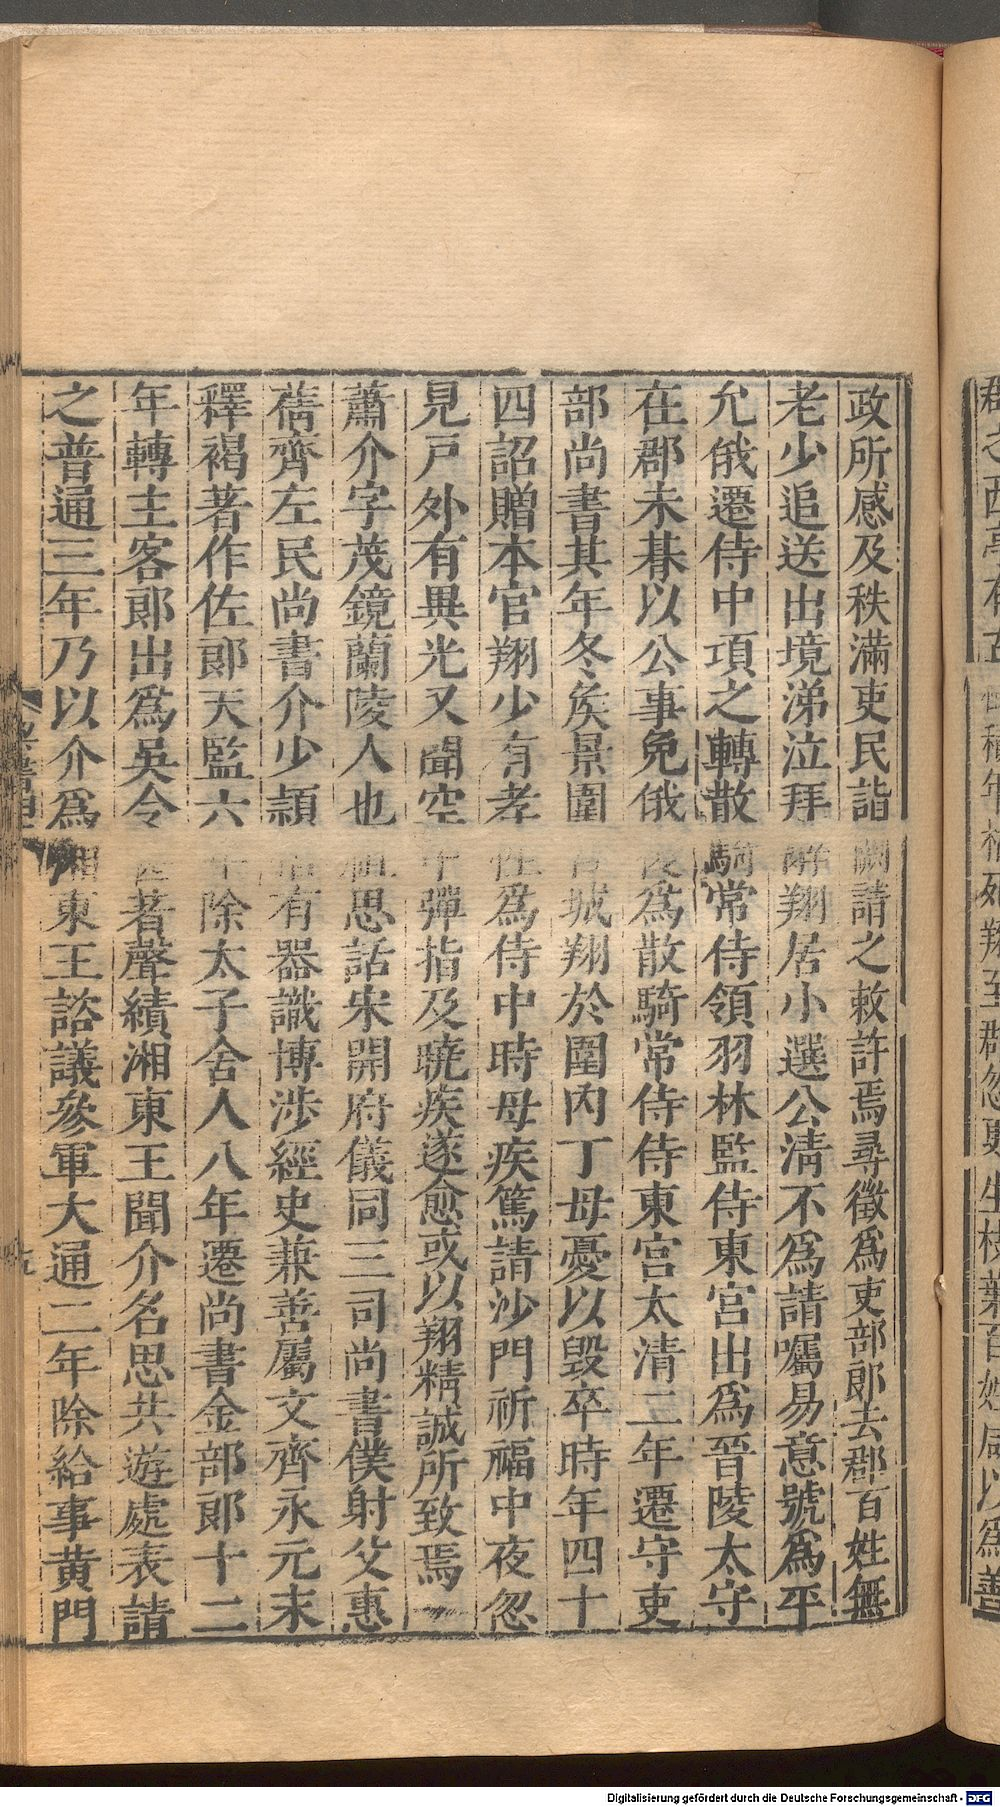 政所感及秩滿吏民詣闕請之敕許焉尋徵爲吏部郎去郡百姓無
老少追送出境涕泣拜辭翔居小選公清不爲請囑易意號爲平
允俄遷侍中項之轉散騎常侍領羽林監侍東宮出爲晉陵太守
在郡未朞以公事免俄復爲散騎常侍侍東宮太清二年遷守吏
部尚書其年冬矦景圍宮城翔於圍內丁母憂以毀卒時年四十
四詔贈本官翔少有孝性爲侍中時母疾篤請沙門祈福中夜忽
見戶外有異光又聞空中彈指及曉疾遂愈或以翔精誠所致焉
蕭介字茂鏡蘭陵人也祖思話宋開府儀同三司尚書僕射父惠
蒨齊左民尚書介少頴悟有器識博涉經史兼善屬文齊永元末
釋褐著作佐郎天監六年除太子舍人八年遷尚書金部郎十二
年轉主客郎出爲吳令甚著聲績湘東王聞介名思共遊處表請
之普通三年乃以介爲湘東王諮議參軍大通二年除給事黃門
Digitalisierung gefördert durch die Deutsche Forschungsgemeinschaft - DFG